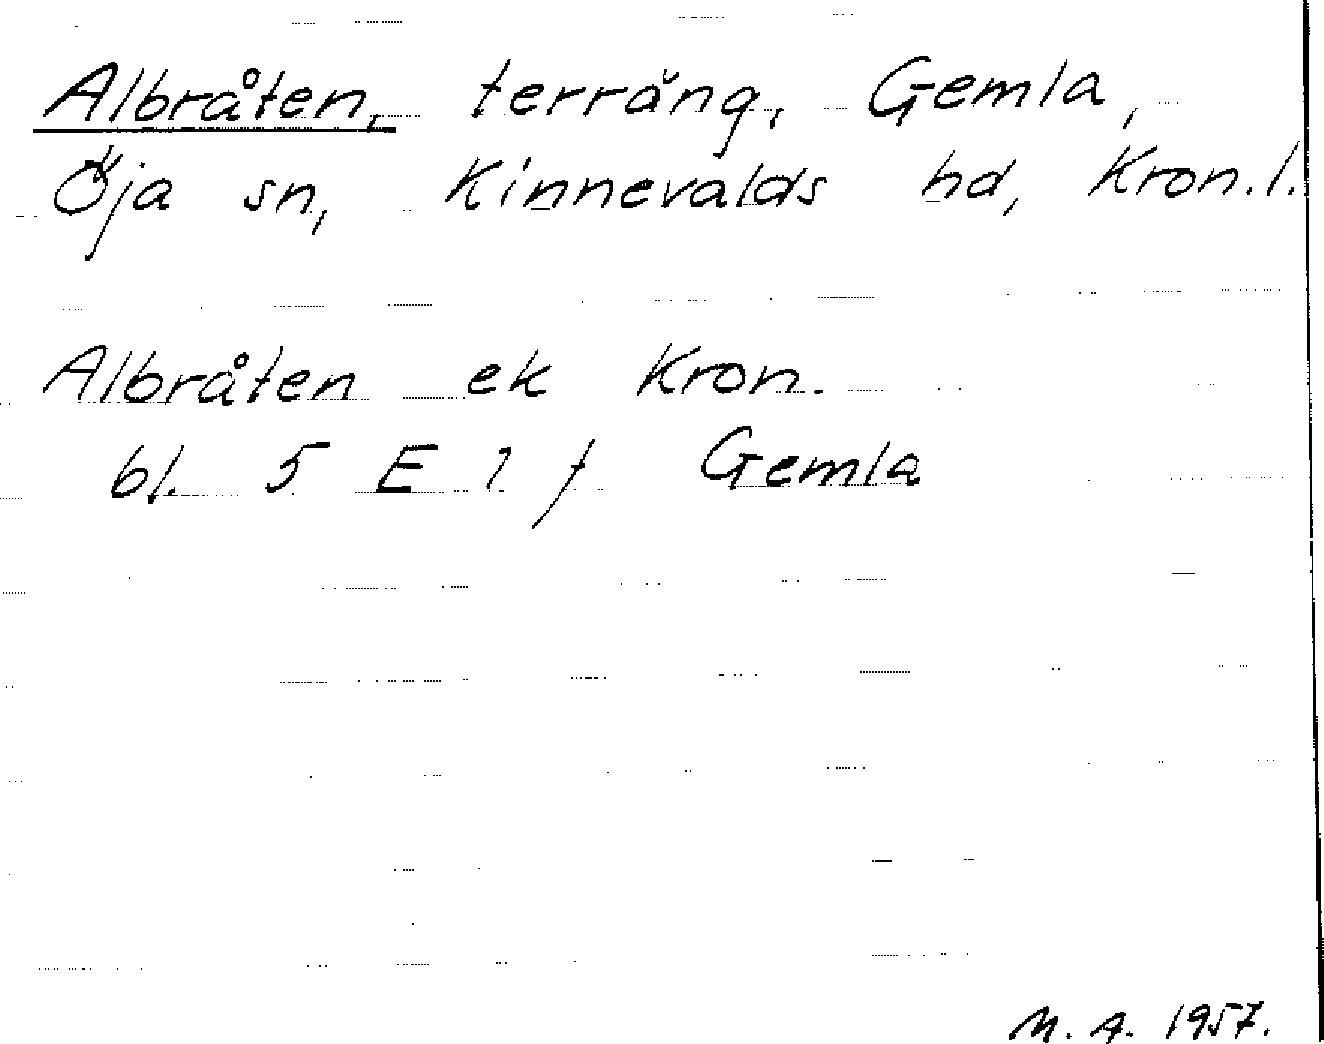 Albråten, terräng, Gemla,
Öja sn, Kinnevalds hd, Kron.l.
Albråten ek Kron.
bl. 5 E 1 f Gemla
M. A. 1957.